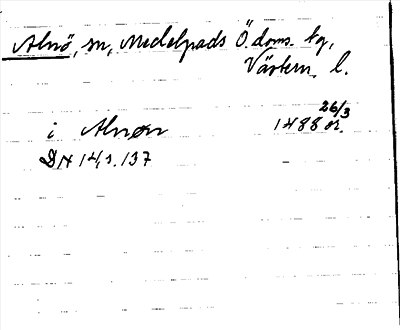 Alnö, sn, Medelpads Ö. doms. tg,
Västern. l.
i Alnøn 1488 26/3 or.
DN 14, s. 137